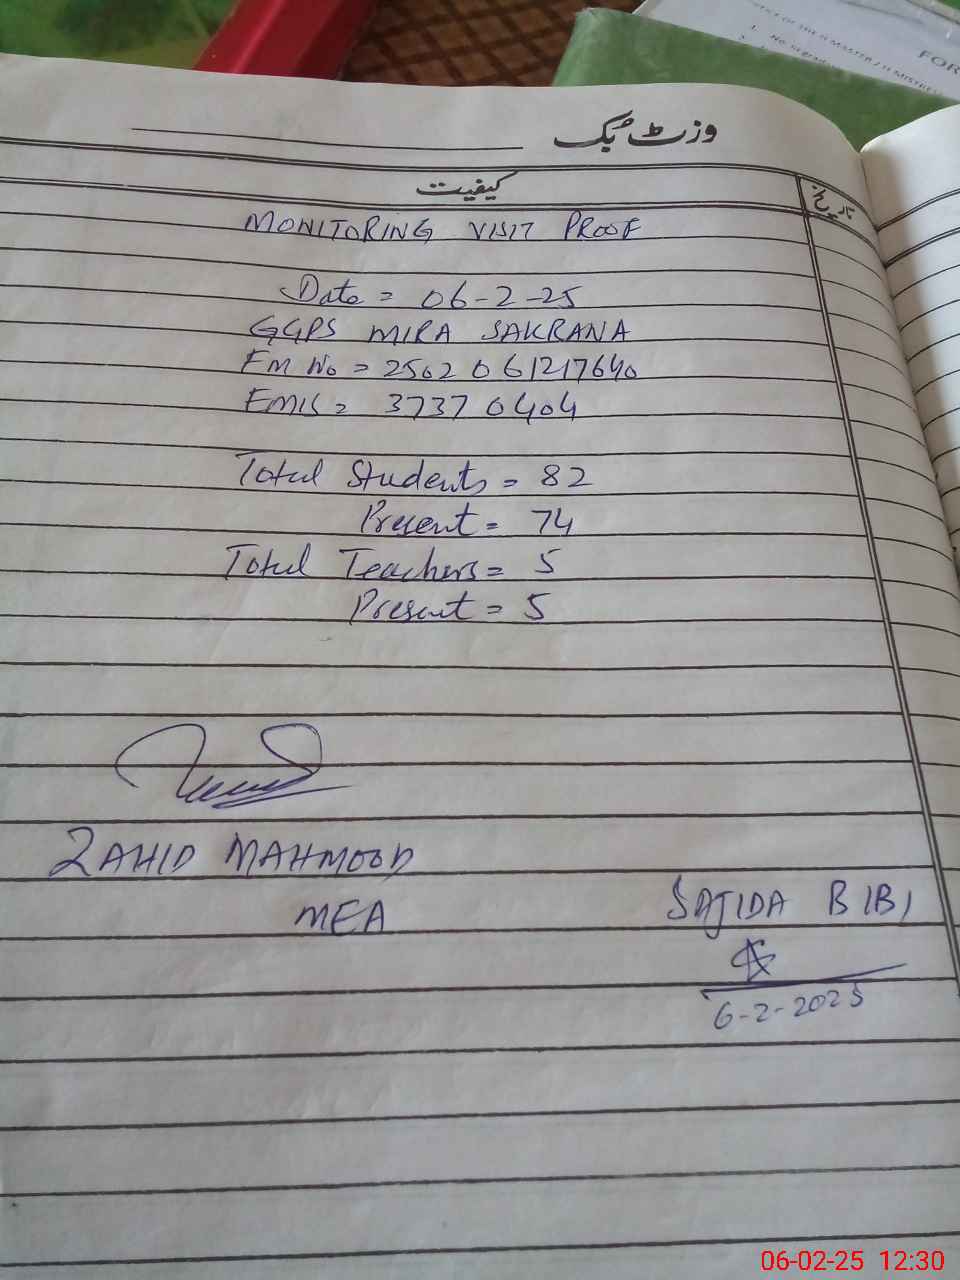 FOR
وزٹ بُک
کیفیت
تاریخ
MONITORING VISIT PROOF
Date = 06-2-25
GGPS MIRA SAKRANA
FM No = 2502061217640
EMIS = 37370404
Total Students = 82
Present = 74
Total Teachers = 5
Present = 5
ZAHID MAHMOOD
MEA
SAJIDA BIBI
6-2-2025
06-02-25 12:30